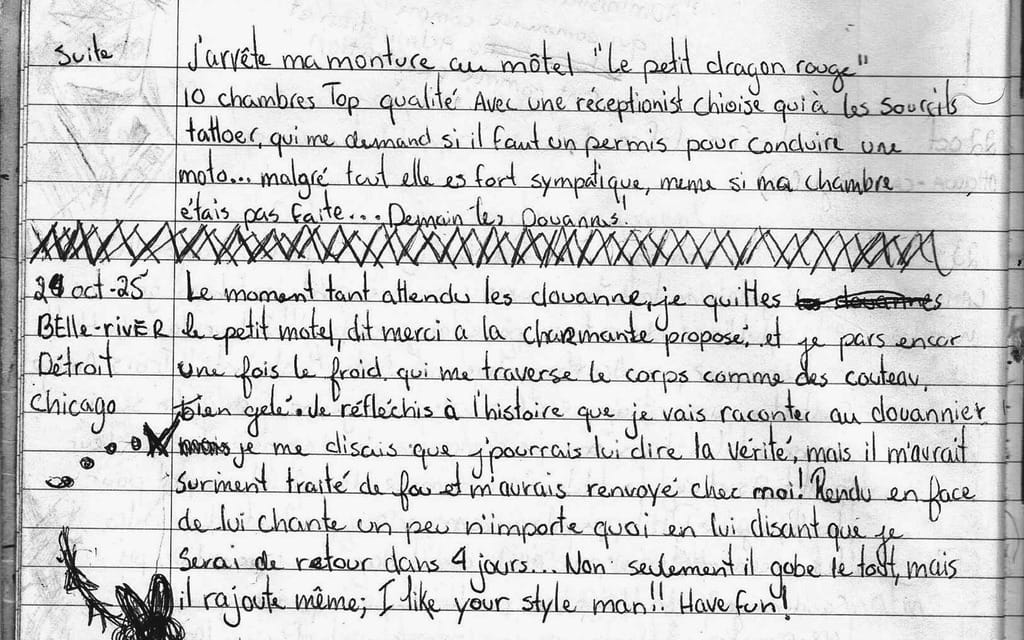 suite J'arrête ma monture au môtel "Le petit dragon rouge"
10 chambres Top qualité Avec une réceptionist chioise qui à les sourcils
tattoer, qui me demand si il faut un permis pour conduire une
moto... malgré tout elle es fort sympatique, meme si ma chambre
étais pas faite... Demain "les Douanns"
24 oct-25 Le moment tant attendu les douanne, je quittes
BElle-rivER le petit motel, dit merci a la charmante proposé, et je pars encor
Détroit une fois le froid qui me traverse le corps comme des couteau,
Chicago bien gelé de réfléchis à l'histoire que je vais raconter au douannier
je me disais que j'pourrais lui dire la vérité, mais il m'aurait
Surment traité de fou et m'aurais renvoyé chez moi! Rendu en face
de lui chante un peu n'importe quoi en lui disant que je
Serai de retour dans 4 jours... Non seulement il gobe le tout, mais
il rajoute même; I like your style man!! Have fun!